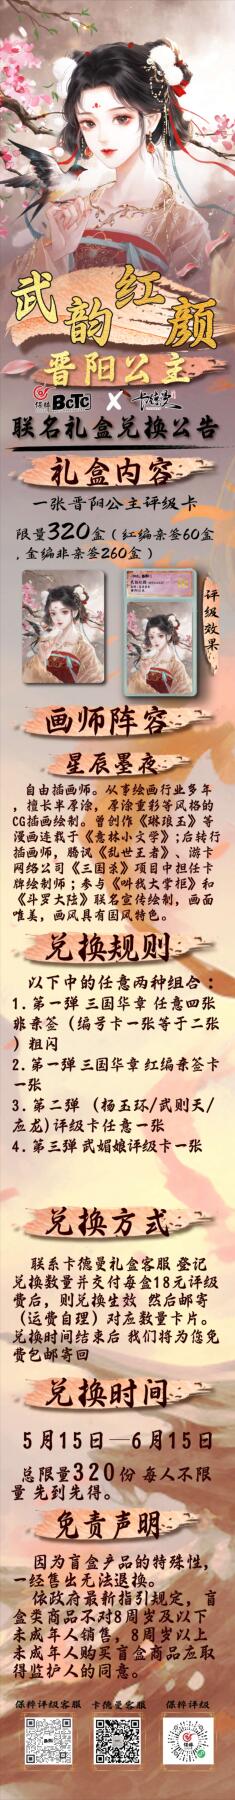 武韵红颜
晋阳公主
保粹 BCTC X 卡德曼
联名礼盒兑换公告
礼盒内容
一张晋阳公主评级卡
限量320盒（红编亲签60盒
,金编非亲签260盒）
评级效果
画师阵容
星辰墨夜
自由插画师。从事绘画行业多年
，擅长半厚涂，厚涂重彩等风格的
CG插画绘制。曾创作《琳琅玉》等
漫画连载于《意林小文学》;后转行
插画师，腾讯《乱世王者》、游卡
网络公司《三国杀》项目中担任卡
牌绘制师；参与《叫我大掌柜》和
《斗罗大陆》联名宣传绘制，画面
唯美，画风具有国风特色。
兑换规则
以下中的任意两种组合：
1.第一弹 三国华章 任意四张
非亲签（编号卡一张等于二张
）粗闪
2.第一弹 三国华章 红编亲签卡
一张
3.第二弹 （杨玉环/武则天/
应龙)评级卡任意一张
4.第三弹 武媚娘评级卡一张
兑换方式
联系卡德曼礼盒客服 登记
兑换数量并交付每盒18元评级
费后，则兑换生效 然后邮寄
（运费自理）对应数量卡片。
兑换时间结束后 我们将为您免
费包邮寄回
兑换时间
5月15日—6月15日
总限量320份 每人不限
量 先到先得。
免责声明
因为盲盒产品的特殊性，
一经售出无法退换。
依政府最新指引规定，盲
盒类商品不对8周岁及以下
未成年人销售，8周岁以上
未成年人购买盲盒商品应取
得监护人的同意。
保粹评级客服 卡德曼客服 保粹评级